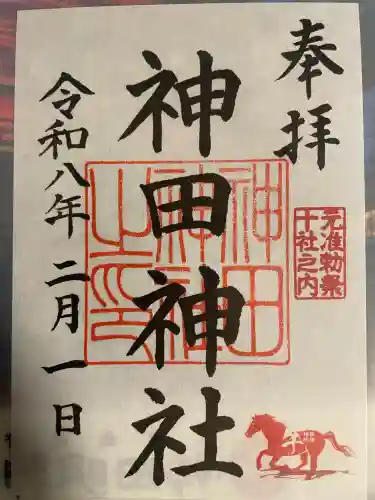 奉拝
元准勅祭
十社之内
神田神社
神田神社之印
令和八年二月一日